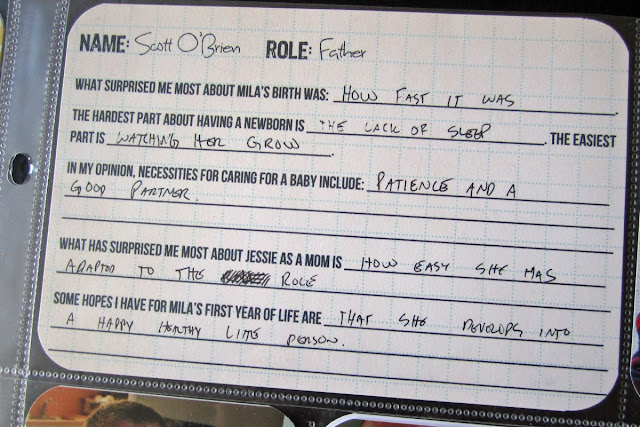 NAME: Scott O'Brien ROLE: Father
WHAT SURPRISED ME MOST ABOUT MILA'S BIRTH WAS: HOW FAST IT WAS.
THE HARDEST PART ABOUT HAVING A NEWBORN IS THE LACK OF SLEEP. THE EASIEST
PART IS WATCHING HER GROW.
IN MY OPINION, NECESSITIES FOR CARING FOR A BABY INCLUDE: PATIENCE AND A
GOOD PARTNER.
WHAT HAS SURPRISED ME MOST ABOUT JESSIE AS A MOM IS HOW EASY SHE HAS
ADAPTED TO THE ROLE
SOME HOPES I HAVE FOR MILA'S FIRST YEAR OF LIFE ARE THAT SHE DEVELOPS INTO
A HAPPY HEALTHY LITTLE PERSON.